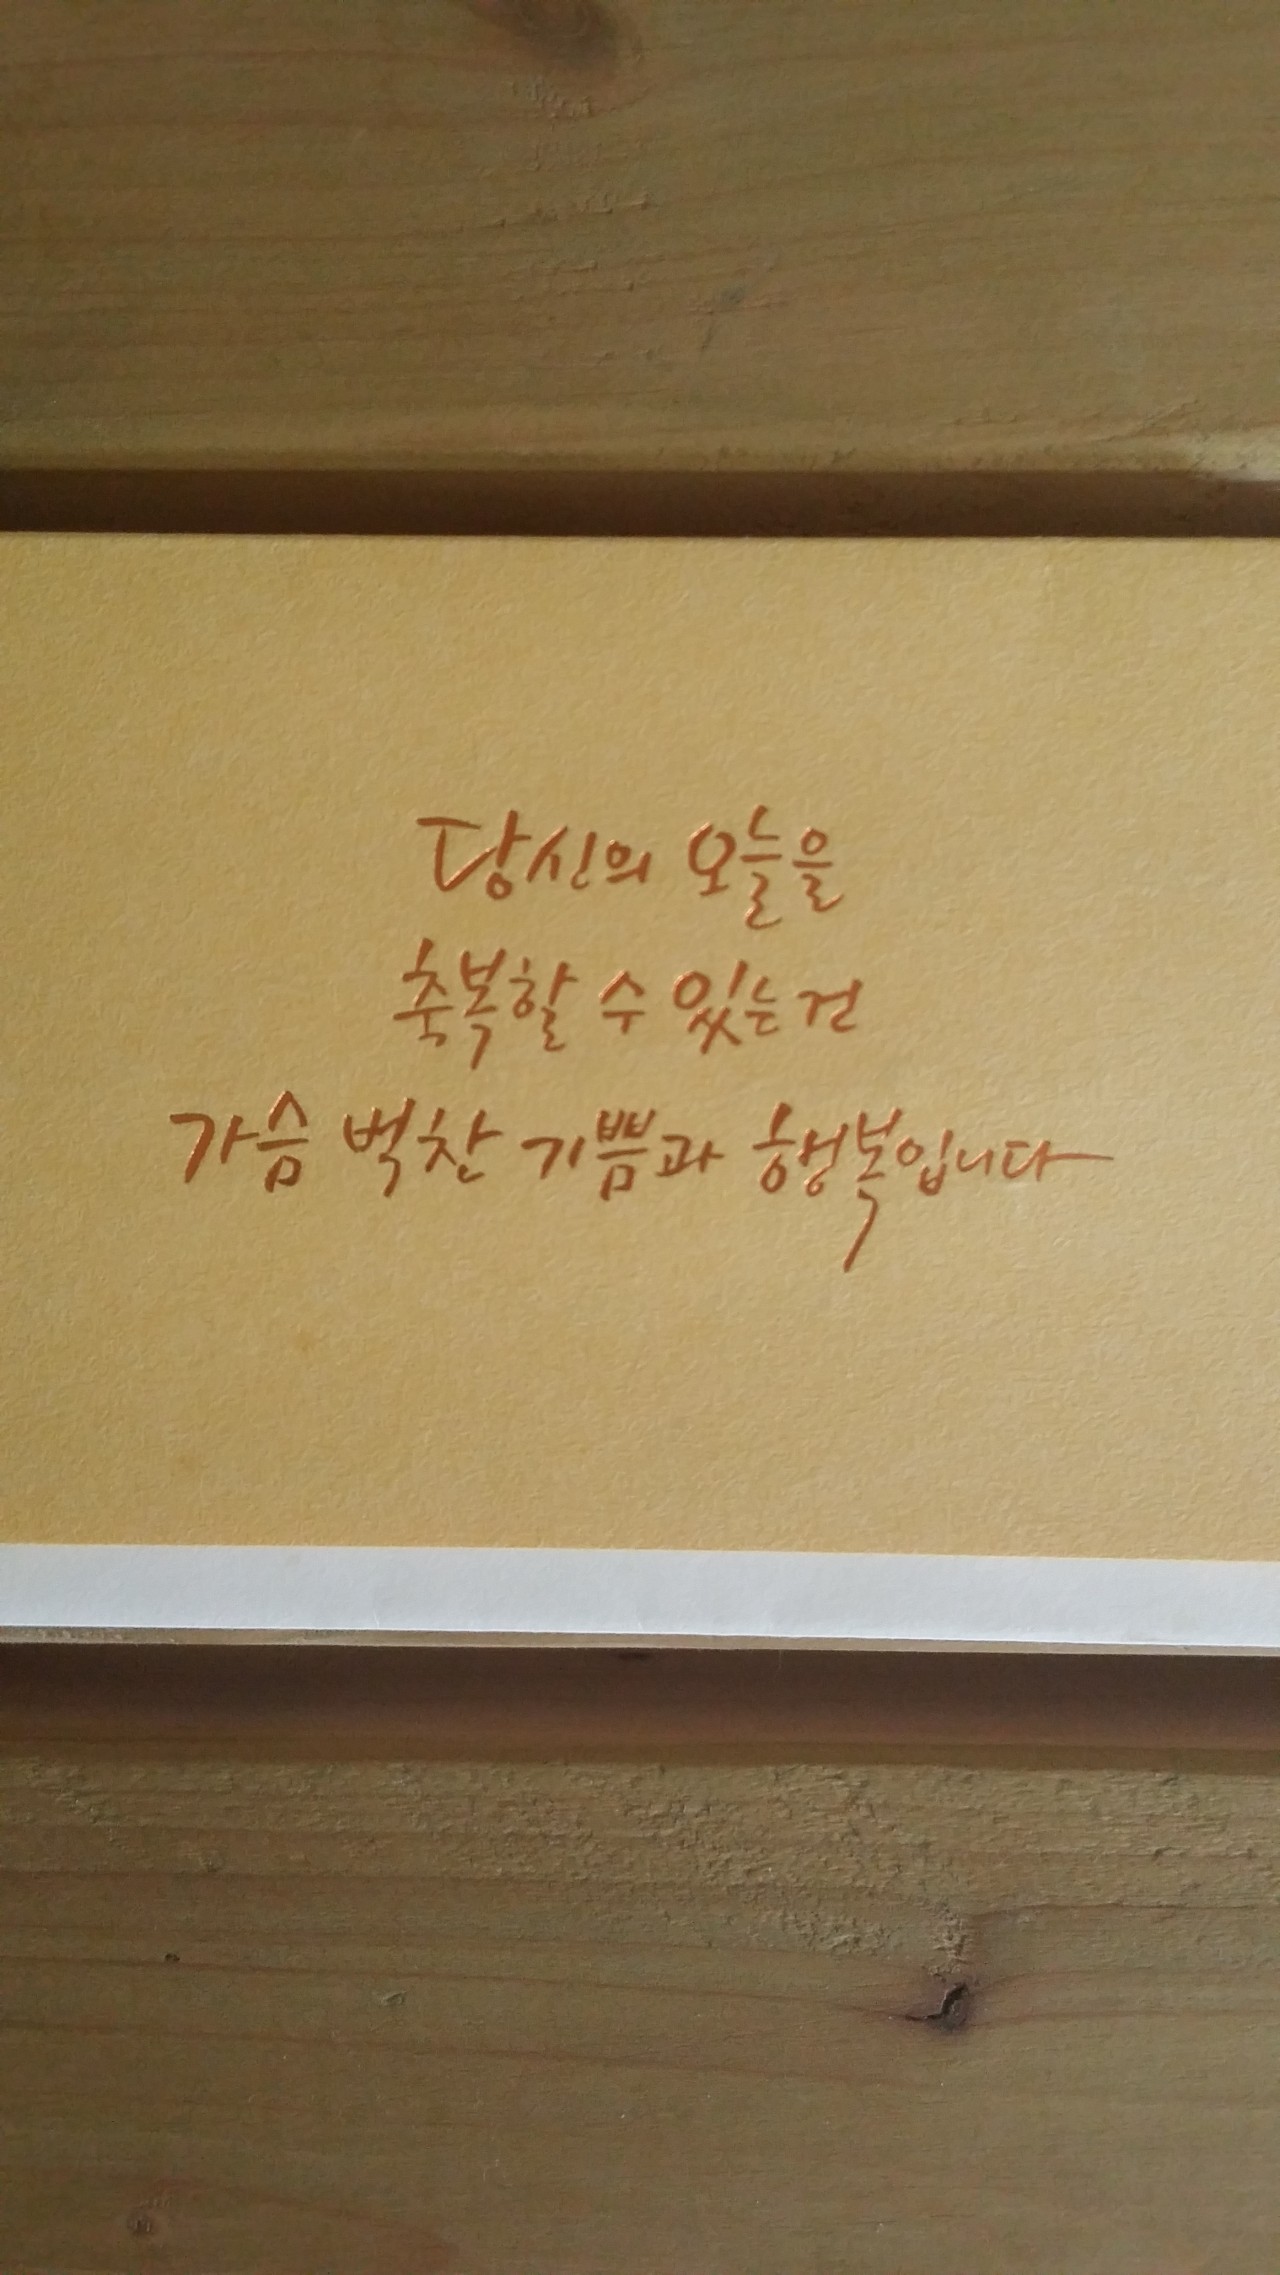 당신의 오늘을
축복할 수 있는 건
가슴 벅찬 기쁨과 행복입니다